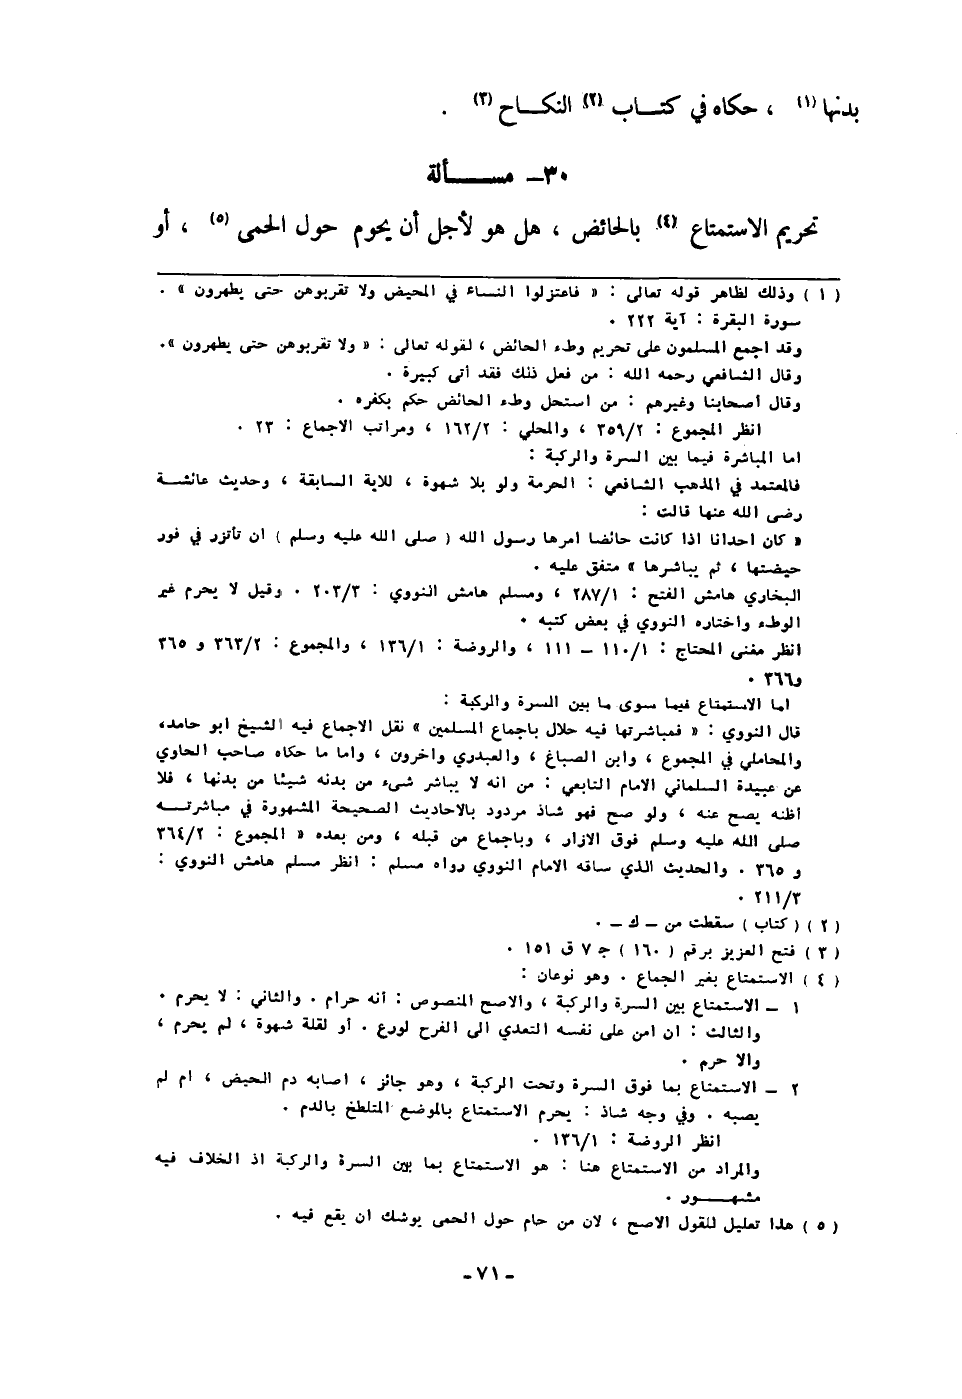 بدنها (١) ، حكاه في كتـــاب (٢) النكـــاح (٣) .
٣٠ـ مســـــألة
تحريم الاستمتاع (٤) بالحائض ، هل هو لأجل أن يحوم حول الحمى (٥) ، أو
( ١ ) وذلك لظاهر قوله تعالى : « فاعتزلوا النساء في المحيض ولا تقربوهن حتى يطهرون » .
سورة البقرة : آية ٢٢٢ .
وقد اجمع المسلمون على تحريم وطء الحائض ، لقوله تعالى : « ولا تقربوهن حتى يطهرون ».
وقال الشافعي رحمه الله : من فعل ذلك فقد أتى كبيرة .
وقال أصحابنا وغيرهم : من استحل وطء الحائض حكم بكفره .
انظر المجموع : ٣٥٩/٢ ، والمحلي : ١٦٢/٢ ، ومراتب الاجماع : ٢٣ .
اما المباشرة فيما بين السرة والركبة :
فالمعتمد في المذهب الشافعي : الحرمة ولو بلا شهوة ، للاية السابقة ، وحديث عائشــة
رضى الله عنها قالت :
« كان احدانا اذا كانت حائضا امرها رسول الله ( صلى الله عليه وسلم ) ان تأتزر في فور
حيضتها ، ثم يباشرها » متفق عليه .
البخاري هامش الفتح : ٢٨٧/١ ، ومسلم هامش النووي : ٢٠٣/٣ . وقيل لا يحرم غير
الوطء واختاره النووي في بعض كتبه .
انظر مغنى المحتاج : ١١٠/١ – ١١١ ، والروضة : ١٣٦/١ ، والمجموع : ٣٦٣/٢ و ٣٦٥
و٣٦٦ .
اما الاستمتاع فيما سوى ما بين السرة والركبة :
قال النووي : « فمباشرتها فيه حلال باجماع المسلمين » نقل الاجماع فيه الشيخ ابو حامد،
والمحاملي في المجموع ، وابن الصباغ ، والعبدري واخرون ، واما ما حكاه صاحب الحاوي
عن عبيدة السلماني الامام التابعي : من انه لا يباشر شىء من بدنه شيئا من بدنها ، فلا
أظنه يصح عنه ، ولو صح فهو شاذ مردود بالاحاديث الصحيحة المشهورة في مباشرتــه
صلى الله عليه وسلم فوق الازار ، وباجماع من قبله ، ومن بعده « المجموع : ٣٦٤/٢
و ٣٦٥ . والحديث الذي ساقه الامام النووي رواه مسلم : انظر مسلم هامش النووي :
٢١١/٣ .
( ٢ ) ( كتاب ) سقطت من – ك – .
( ٣ ) فتح العزيز برقم ( ١٦٠ ) ج ٧ ق ١٥١ .
( ٤ ) الاستمتاع بغير الجماع . وهو نوعان :
١ – الاستمتاع بين السرة والركبة ، والاصح المنصوص : أنه حرام . والثاني : لا يحرم .
والثالث : ان امن على نفسه التعدي الى الفرج لورع . أو لقلة شهوة ، لم يحرم ،
والا حرم .
٢ – الاستمتاع بما فوق السرة وتحت الركبة ، وهو جائز ، اصابه دم الحيض ، ام لم
يصبه . وفي وجه شاذ : يحرم الاستمتاع بالموضع المتلطخ بالدم .
انظر الروضة : ١٣٦/١ .
والمراد من الاستمتاع هنا : هو الاستمتاع بما بين السرة والركبة اذ الخلاف فيه
مشهـــور .
( ٥ ) هذا تعليل للقول الاصح ، لان من حام حول الحمى يوشك ان يقع فيه .
- ٧١ -